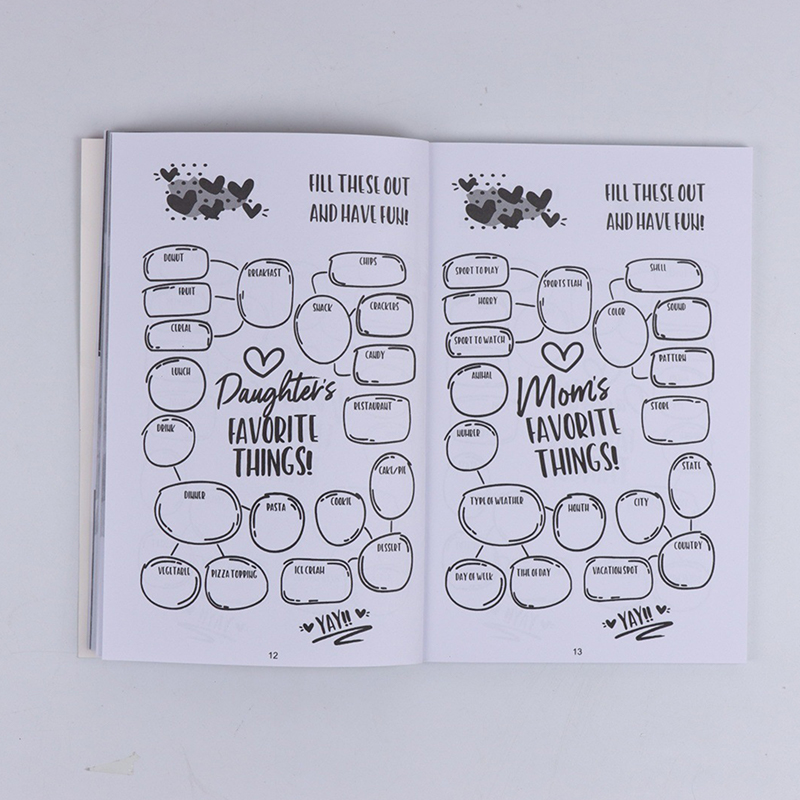 FILL THESE OUT
AND HAVE FUN!
DONUT
FRUIT
CEREAL
BREAKFAST
CHIPS
SNACK
CRACKERS
CANDY
LUNCH
RESTAURANT
Daughter's
FAVORITE
THINGS!
DRINK
CAKE/PIE
DINNER
PASTA
COOKIE
DESSERT
VEGETABLE
PIZZA TOPPING
ICE CREAM
YAY!!
12
FILL THESE OUT
AND HAVE FUN!
SPORT TO PLAY
HOBBY
SPORT TO WATCH
SPORTS TEAM
SMELL
COLOR
SOUND
PATTERN
ANIMAL
STORE
Mom's
FAVORITE
THINGS!
NUMBER
STATE
TYPE OF WEATHER
MONTH
CITY
COUNTRY
DAY OF WEEK
TIME OF DAY
VACATION SPOT
YAY!!
13